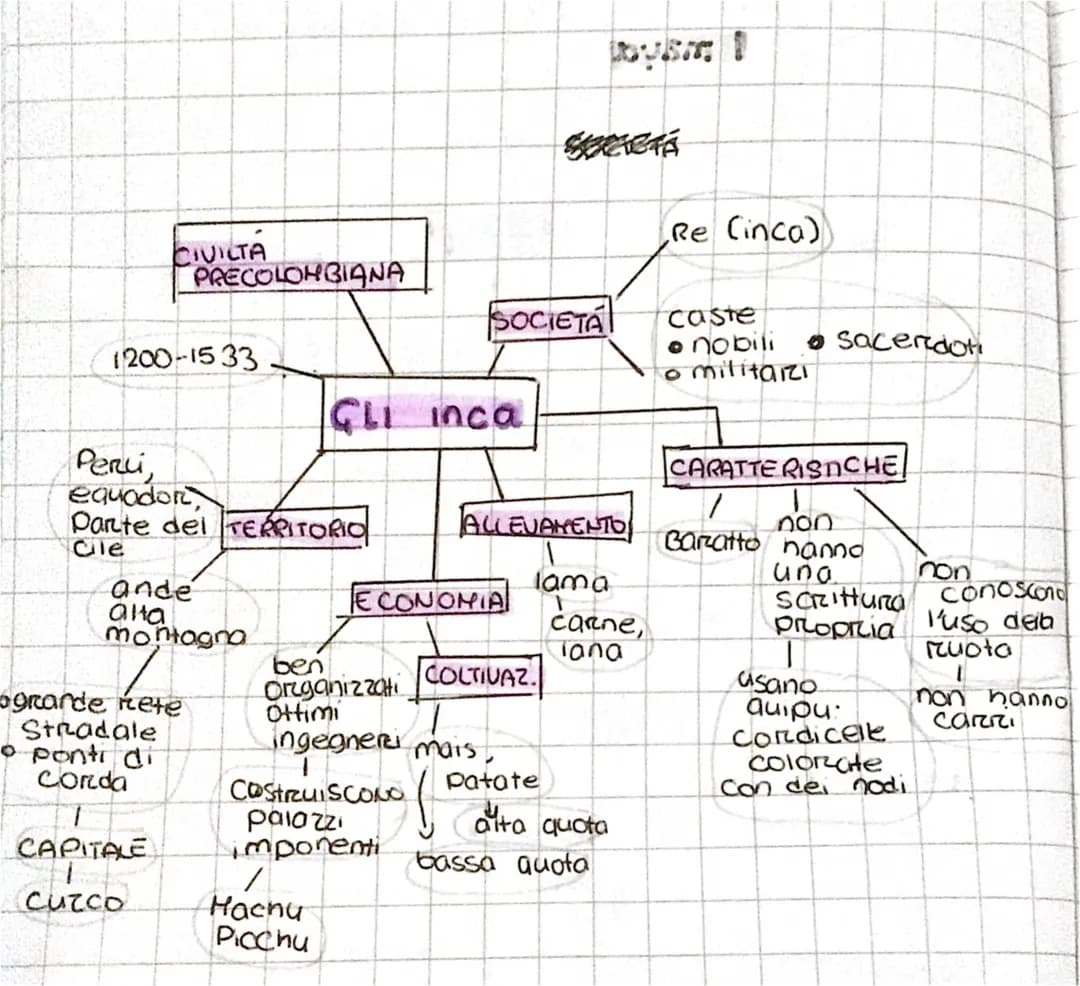 SOCIETÁ
CIVILTÁ
PRECOLOMBIANA
1200-1533
Gli inca
SOCIETÁ
Re (inca)
caste
• nobili • sacerdoti
• militari
CARATTERISTICHE
Baratto
non
hanno
una
scrittura
propria
usano
quipu:
cordicelle
colorate
con dei nodi
non
conoscono
l'uso della
ruota
non hanno
carri
ALLEVAMENTO
lama
carne,
lana
TERRITORIO
Perù,
equador,
Parte del
cile
ande
alta
montagna
• grande rete
stradale
• ponti di
corda
CAPITALE
cuzco
ECONOMIA
ben
organizzati
ottimi
ingegneri
costruiscono
palazzi
imponenti
Machu
Picchu
COLTIVAZ.
mais,
patate
alta quota
bassa quota